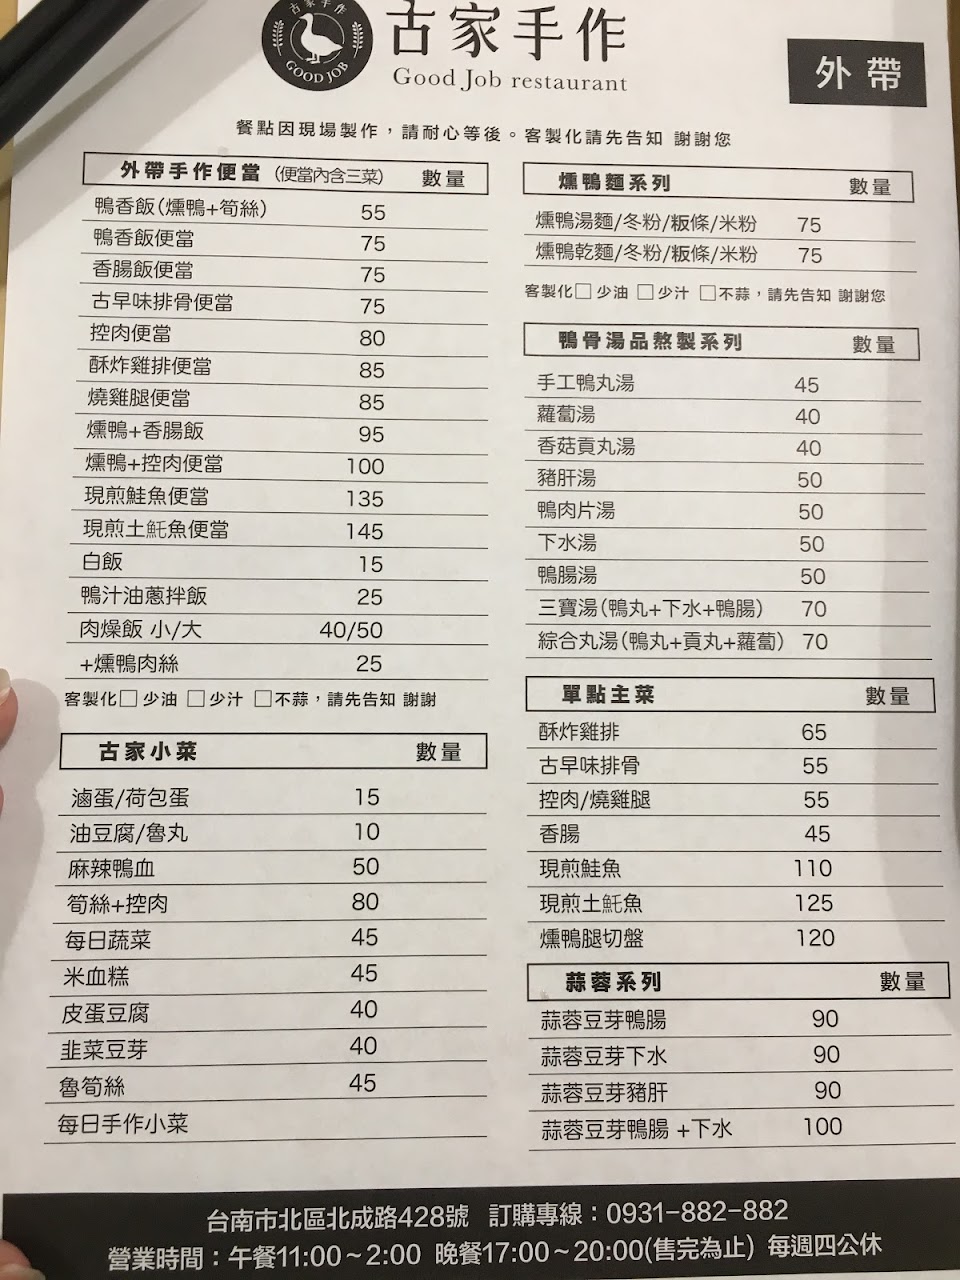 古家手作
GOOD JOB
古家手作
Good Job restaurant
外帶
餐點因現場製作，請耐心等後。客製化請先告知 謝謝您
外帶手作便當（便當內含三菜） 數量
鴨香飯（燻鴨+筍絲） 55
鴨香飯便當 75
香腸飯便當 75
古早味排骨便當 75
控肉便當 80
酥炸雞排便當 85
燒雞腿便當 85
燻鴨+香腸飯 95
燻鴨+控肉便當 100
現煎鮭魚便當 135
現煎土魠魚便當 145
白飯 15
鴨汁油蔥拌飯 25
肉燥飯 小/大 40/50
+燻鴨肉絲 25
客製化□少油 □少汁 □不蒜，請先告知 謝謝
古家小菜 數量
滷蛋/荷包蛋 15
油豆腐/魯丸 10
麻辣鴨血 50
筍絲+控肉 80
每日蔬菜 45
米血糕 45
皮蛋豆腐 40
韭菜豆芽 40
魯筍絲 45
每日手作小菜
燻鴨麵系列 數量
燻鴨湯麵/冬粉/粄條/米粉 75
燻鴨乾麵/冬粉/粄條/米粉 75
客製化□少油 □少汁 □不蒜，請先告知 謝謝您
鴨骨湯品熬製系列 數量
手工鴨丸湯 45
蘿蔔湯 40
香菇貢丸湯 40
豬肝湯 50
鴨肉片湯 50
下水湯 50
鴨腸湯 50
三寶湯（鴨丸+下水+鴨腸） 70
綜合丸湯（鴨丸+貢丸+蘿蔔） 70
單點主菜 數量
酥炸雞排 65
古早味排骨 55
控肉/燒雞腿 55
香腸 45
現煎鮭魚 110
現煎土魠魚 125
燻鴨腿切盤 120
蒜蓉系列 數量
蒜蓉豆芽鴨腸 90
蒜蓉豆芽下水 90
蒜蓉豆芽豬肝 90
蒜蓉豆芽鴨腸 +下水 100
台南市北區北成路428號 訂購專線：0931-882-882
營業時間：午餐11:00～2:00 晚餐17:00～20:00(售完為止) 每週四公休